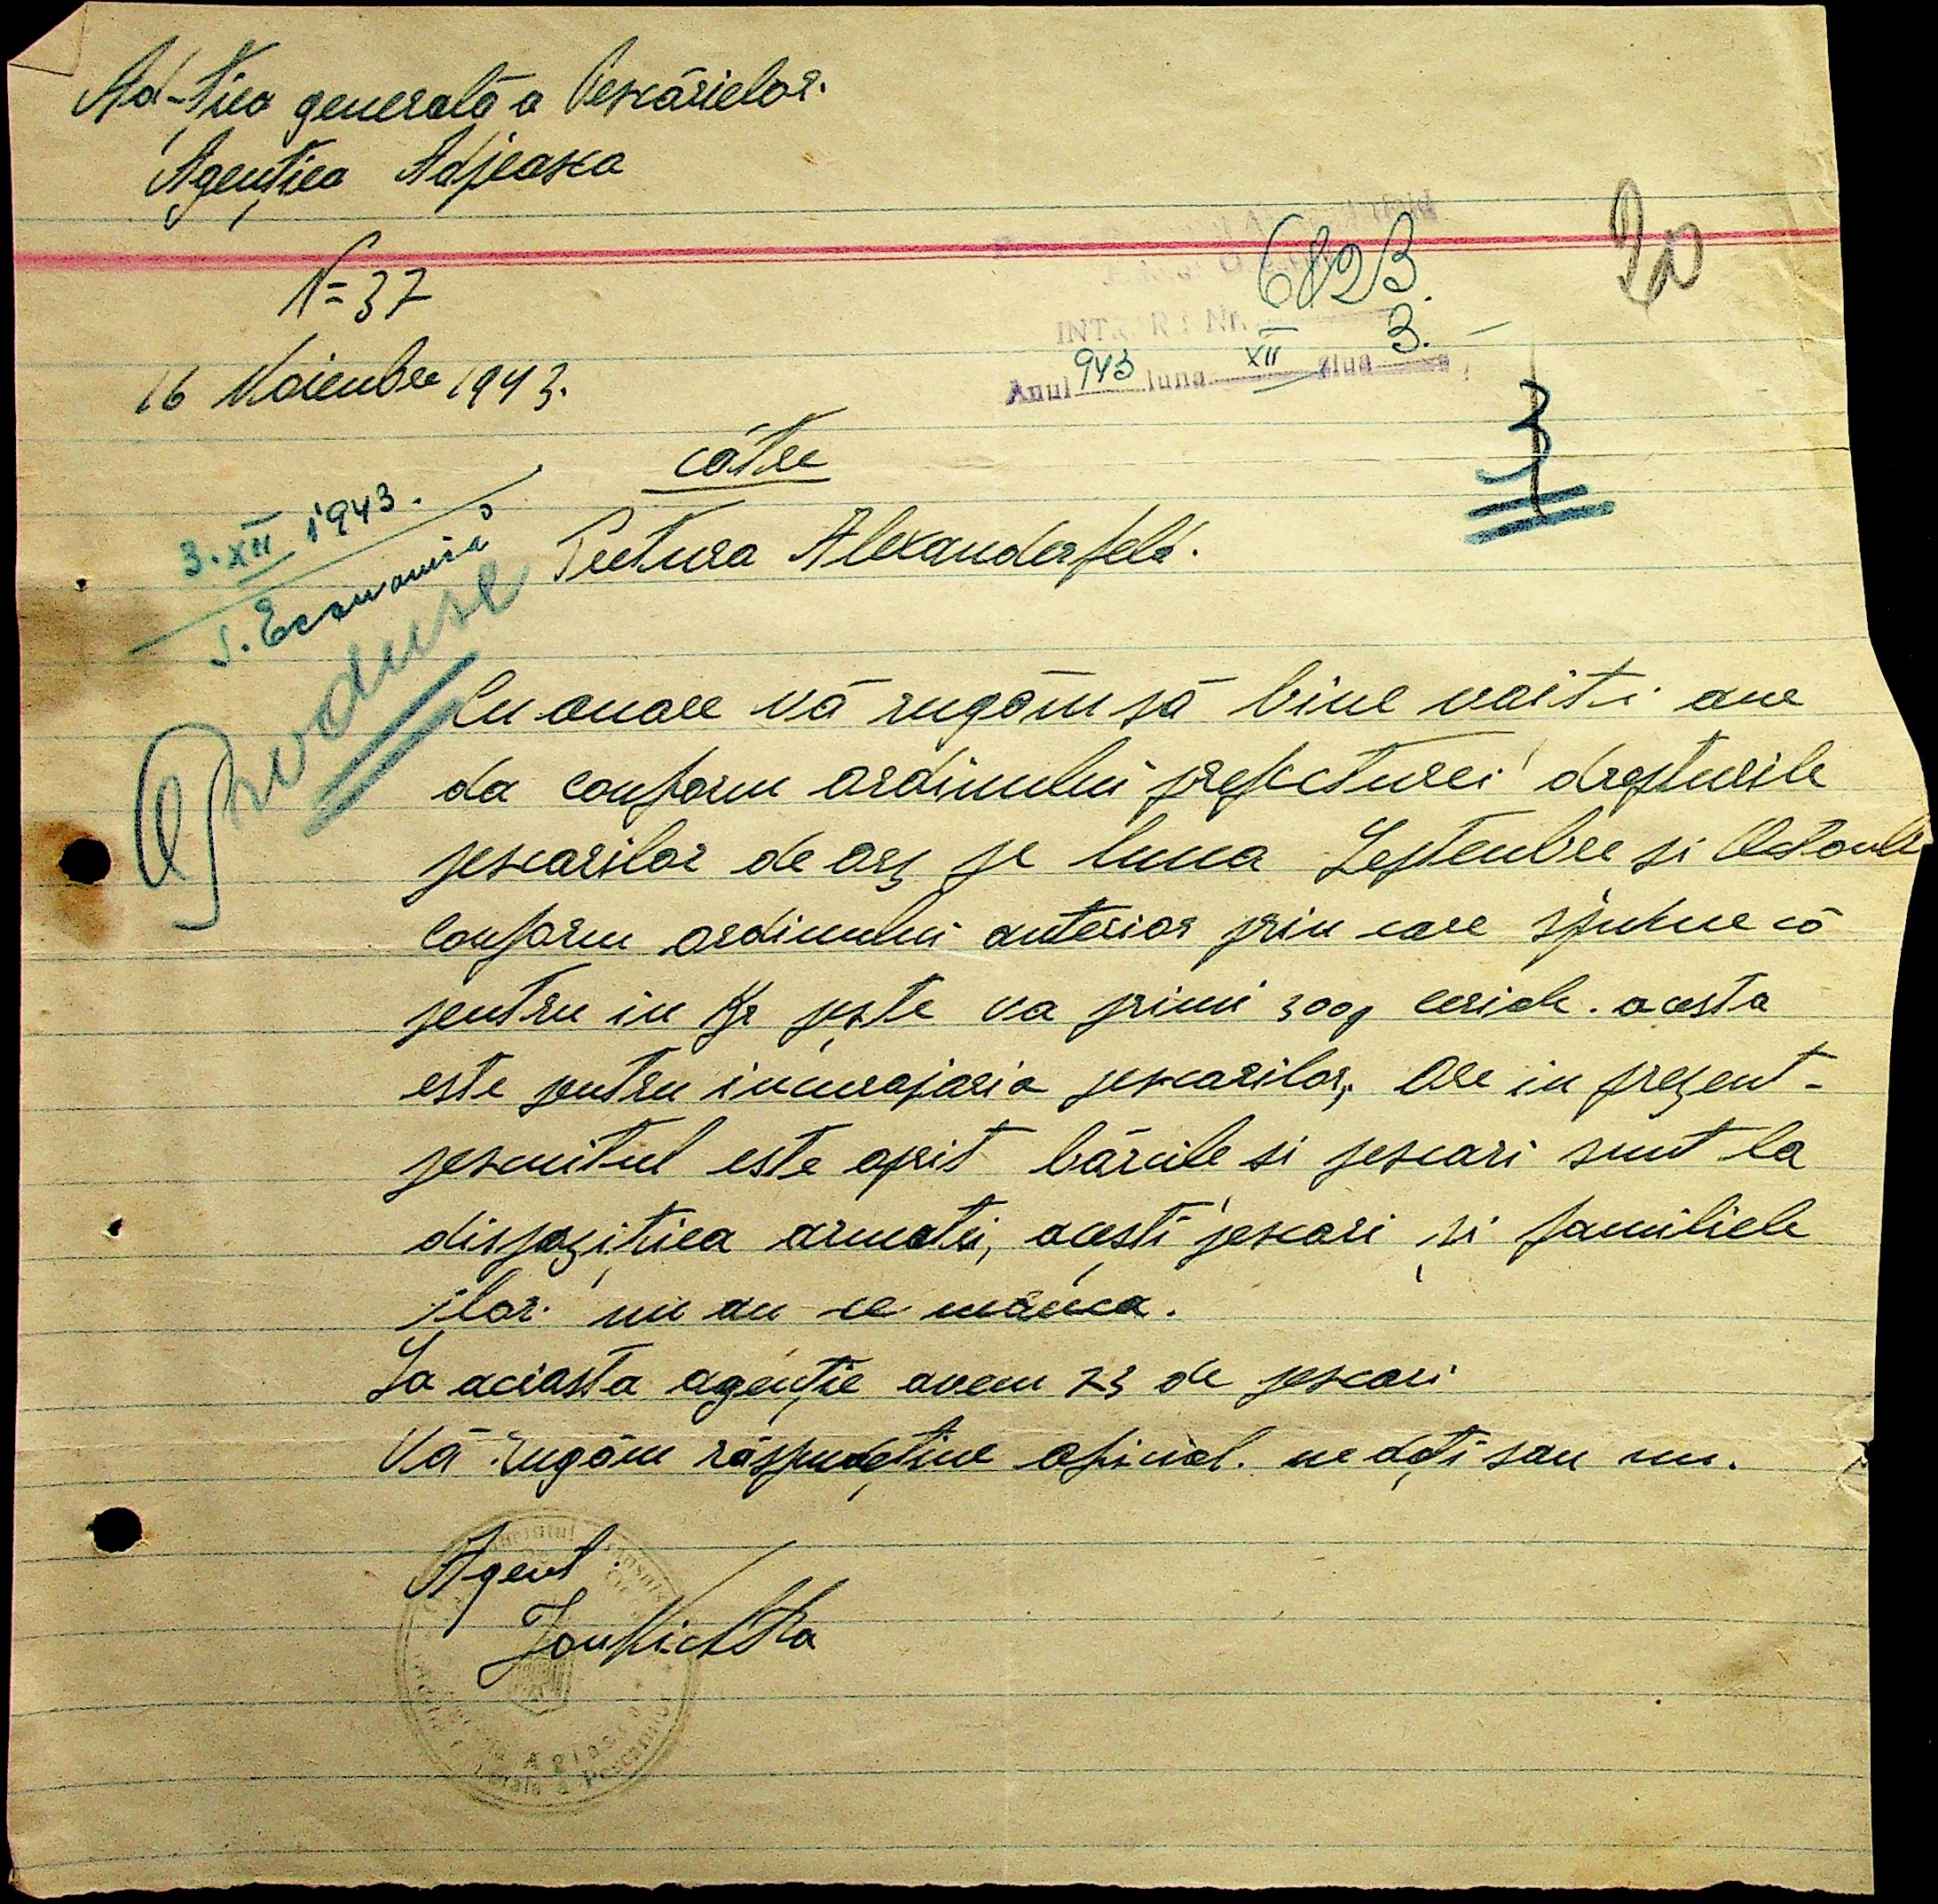 Ad-ția generală a Pescărielor.
Agenția Adjeasca
20
N= 37
6823.
INTRARE Nr.
16 Noiembre 1943.
Anul 943 luna XII ziua 3.
3
către
3. XII 1943.
S. Economică
Pretura Alexanderfeld.
Produse
Cu onoare vă rugăm să bine voiti ane
da conform ordinului prefecturei drepturile
pescarilor de orz pe luna Septembre si Octombr
Conform ordinului anterior prin care spuhne că
pentru in Kgr peste va primi 300g ceriale. acesta
este pentru incurajaria pescarilor, Ore in prezent-
pescuitul este oprit bărcile si pescari sunt la
dispoziția armatei, acesti pescari și familiele
ilor. nu au ce mânca.
La aciasta agenție avem 23 de pescari
Vă rugăm răspundeține oficial. ne dați sau nu.
Agent